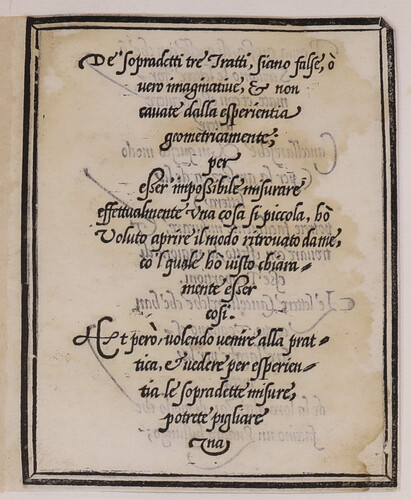 De' sopradetti tre Tratti, siano false, ò
vero imaginatiue, & non
cauate dalla esperientia
geometricamente;
per
esser' impossibile misurare
effettualmente vna cosa si piccola, hò
Voluto aprire il modo ritrouato dame,
co'l quale hò uisto chiara-
mente esser
cosi.
Et però, uolendo uenire alla prat-
tica, & uedere per esperien-
tia le sopradette misure,
potrete pigliare
vna